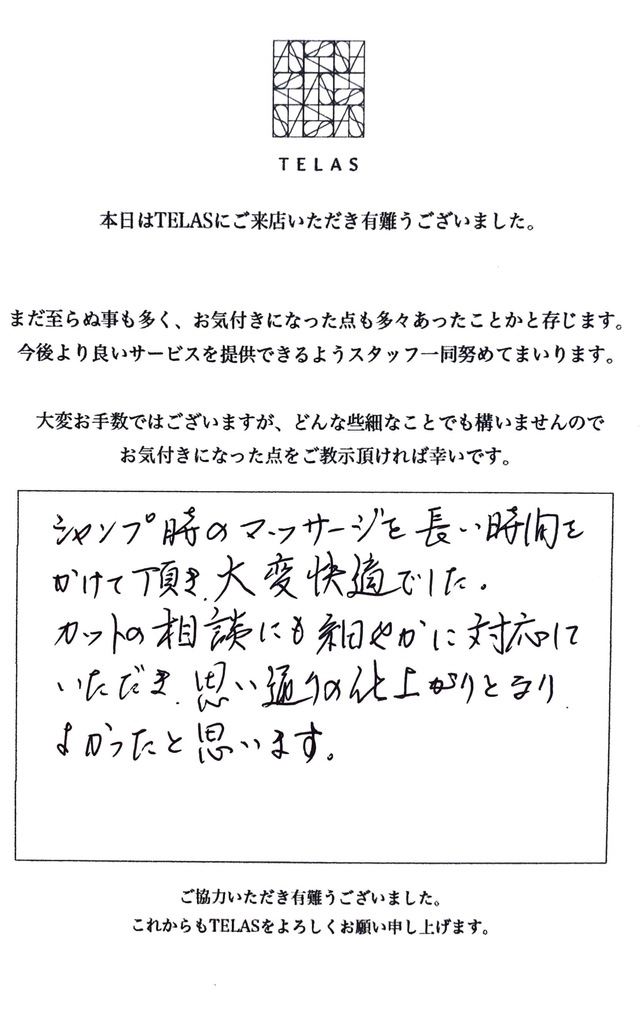 TELAS
本日はTELASにご来店いただき有難うございました。
まだ至らぬ事も多く、お気付きになった点も多々あったことかと存じます。
今後より良いサービスを提供できるようスタッフ一同努めてまいります。
大変お手数ではございますが、どんな些細なことでも構いませんので
お気付きになった点をご教示頂ければ幸いです。
シャンプ時のマッサージを長い時間を
かけて頂き、大変快適でした。
カットの相談にも細やかに対応して
いただき、思い通りの仕上がりとなり
よかったと思います。
ご協力いただき有難うございました。
これからもTELASをよろしくお願い申し上げます。